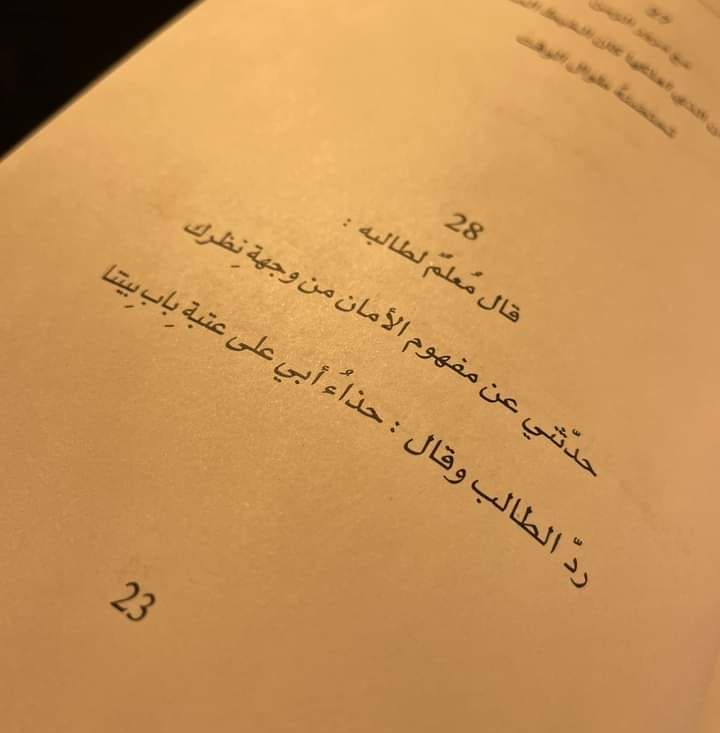 28
قال مُعلمٌ لطالبه :
حدّثني عن مفهوم الأمان من وجهةِ نِظرك
ردّ الطالب وقال : حذاُء أبي على عتبة بِاب بِيتنا
23